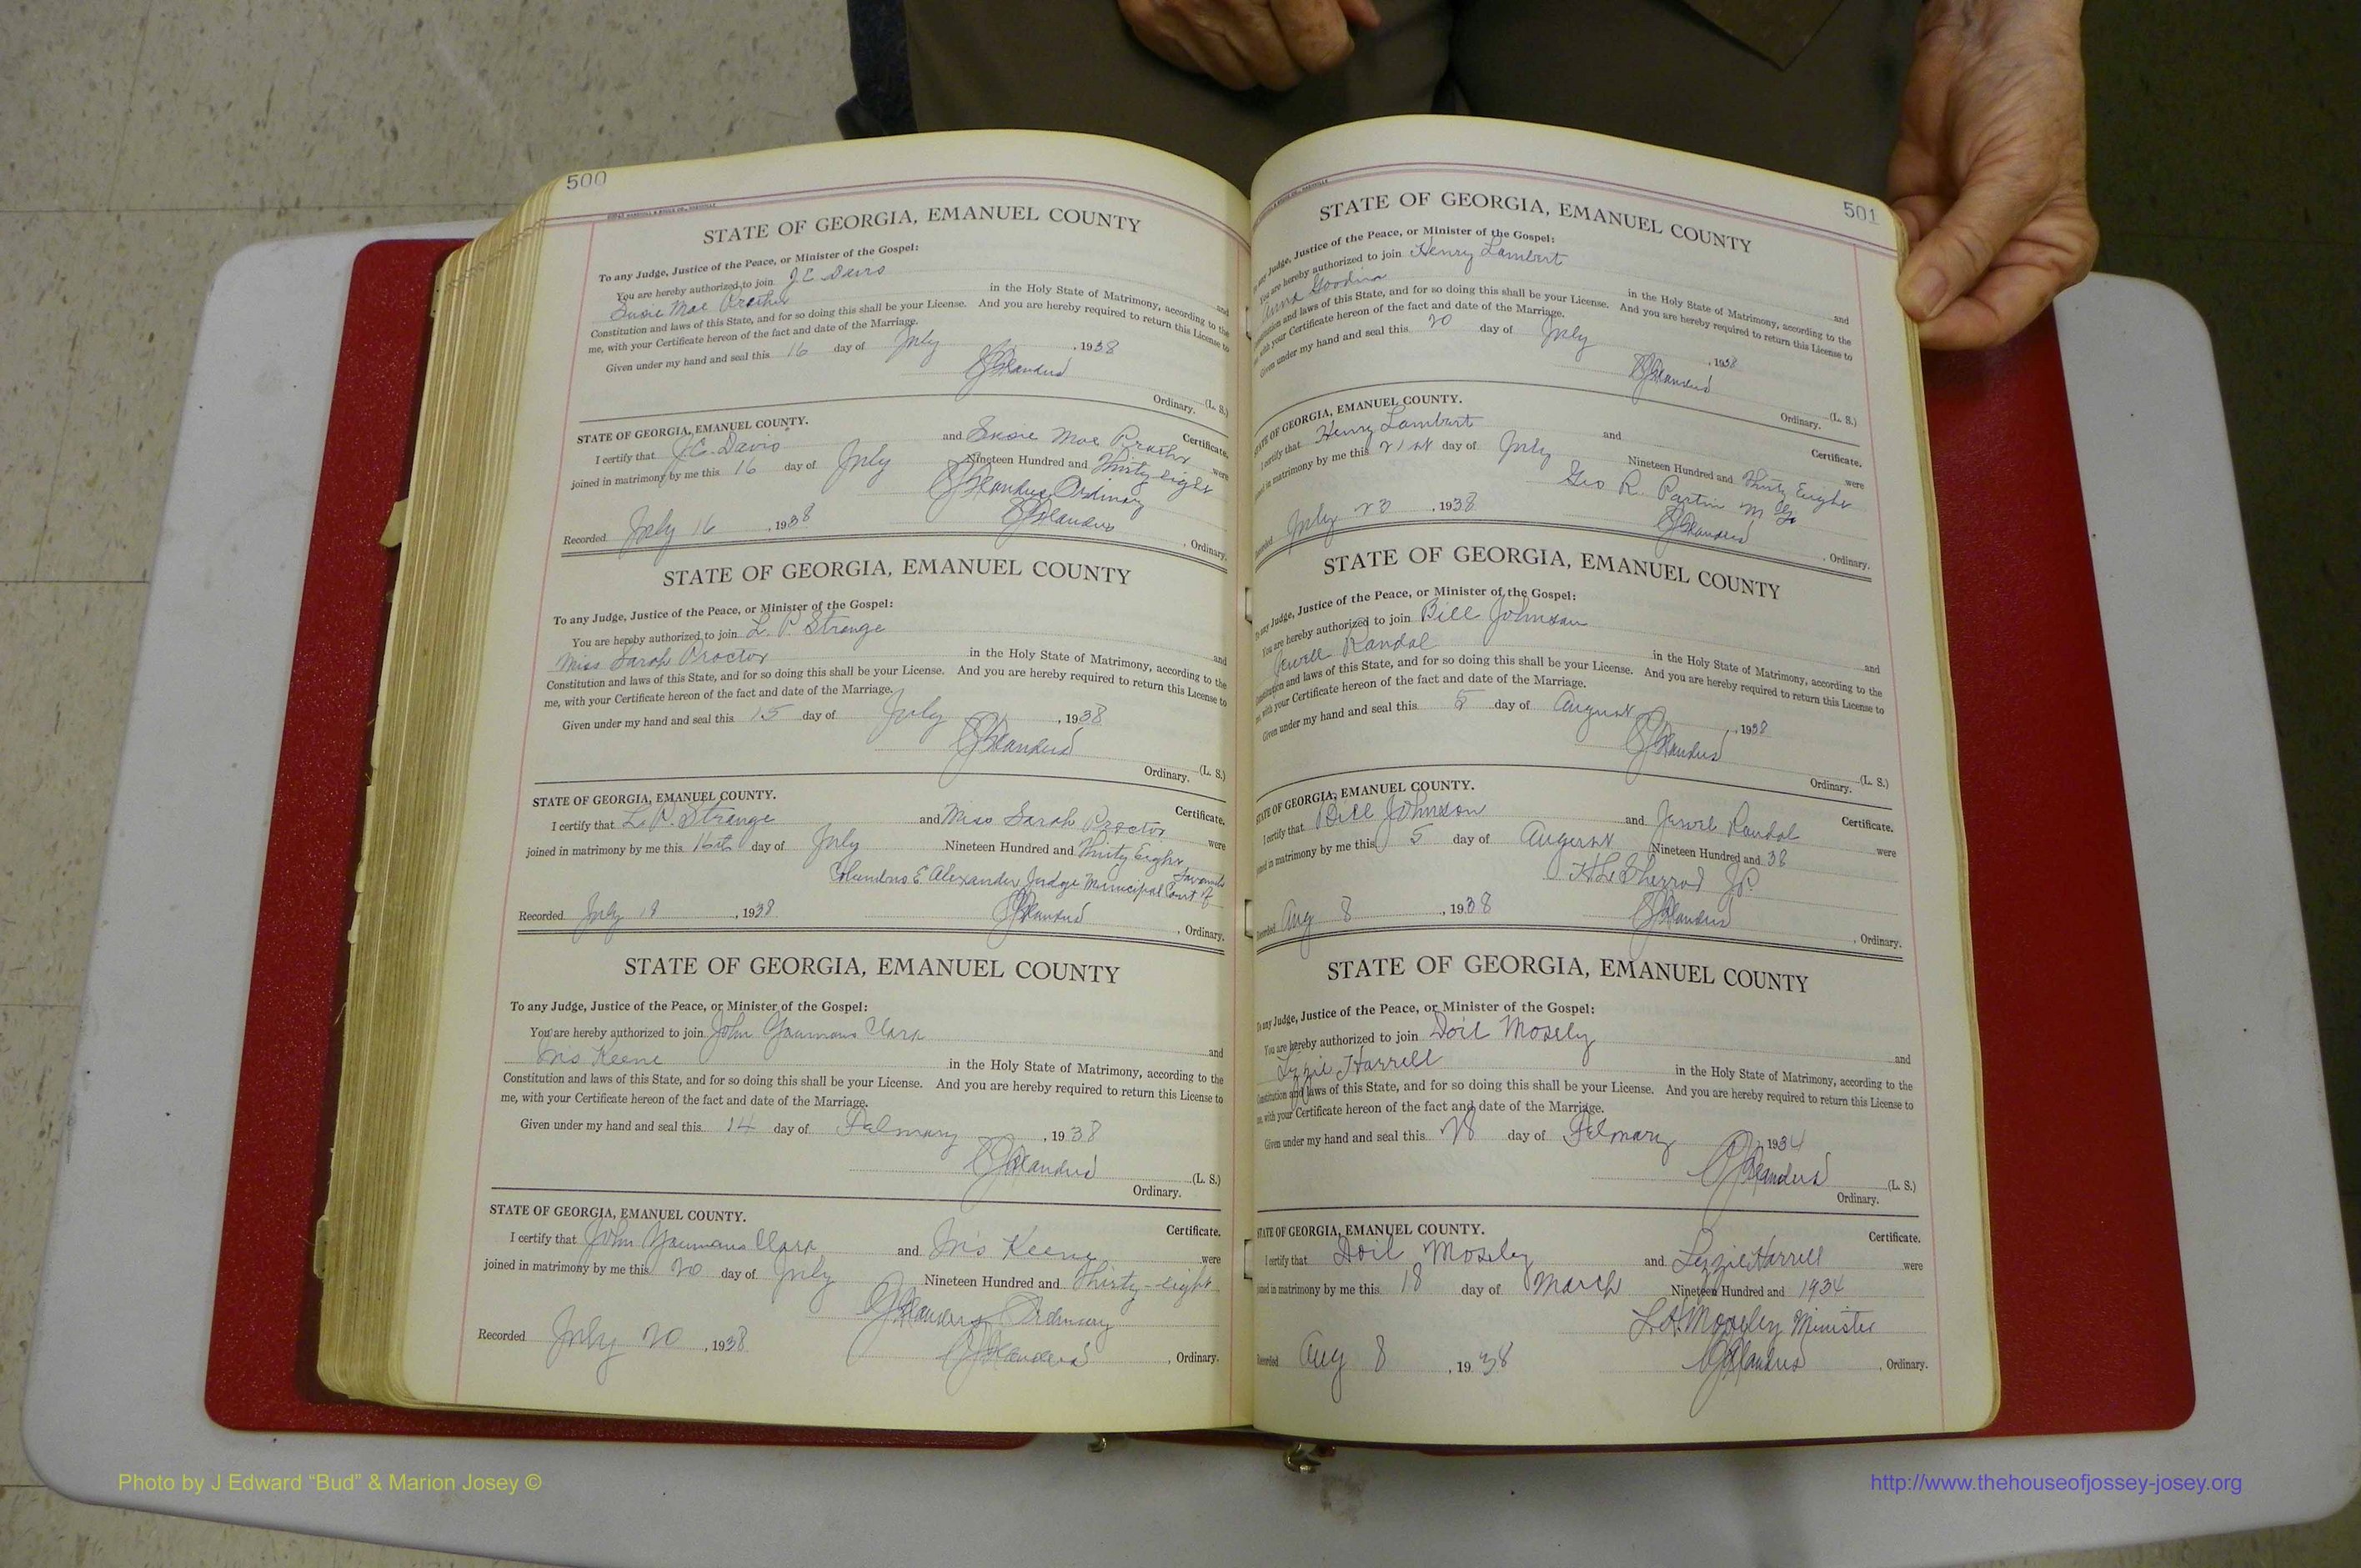 500
STATE OF GEORGIA, EMANUEL COUNTY
To any Judge, Justice of the Peace, or Minister of the Gospel:
You are hereby authorized to join J. C. Davis and
Susie Mae Prather in the Holy State of Matrimony, according to the
Constitution and laws of this State, and for so doing this shall be your License. And you are hereby required to return this License to
me, with your Certificate hereon of the fact and date of the Marriage.
Given under my hand and seal this 16 day of July, 1938
(L. S.)
Ordinary.
STATE OF GEORGIA, EMANUEL COUNTY. Certificate.
I certify that J. C. Davis and Susie Mae Prather were
joined in matrimony by me this 16 day of July Nineteen Hundred and Thirty eight
Ordinary
Recorded July 16, 1938 , Ordinary.
STATE OF GEORGIA, EMANUEL COUNTY
To any Judge, Justice of the Peace, or Minister of the Gospel:
You are hereby authorized to join L. P. Strange and
Miss Sarah Proctor in the Holy State of Matrimony, according to the
Constitution and laws of this State, and for so doing this shall be your License. And you are hereby required to return this License to
me, with your Certificate hereon of the fact and date of the Marriage.
Given under my hand and seal this 15 day of July, 1938
(L. S.)
Ordinary.
STATE OF GEORGIA, EMANUEL COUNTY. Certificate.
I certify that L. P. Strange and Miss Sarah Proctor were
joined in matrimony by me this 16th day of July Nineteen Hundred and Thirty Eight
Columbus E Alexander Judge Municipal Court of
Recorded July 18, 1938 , Ordinary.
STATE OF GEORGIA, EMANUEL COUNTY
To any Judge, Justice of the Peace, or Minister of the Gospel:
You are hereby authorized to join John Youmans Clark and
Iris Keene in the Holy State of Matrimony, according to the
Constitution and laws of this State, and for so doing this shall be your License. And you are hereby required to return this License to
me, with your Certificate hereon of the fact and date of the Marriage.
Given under my hand and seal this 14 day of February, 1938
(L. S.)
Ordinary.
STATE OF GEORGIA, EMANUEL COUNTY. Certificate.
I certify that John Youmans Clark and Iris Keene were
joined in matrimony by me this 20 day of July Nineteen Hundred and Thirty-eight
Ordinary
Recorded July 20, 1938 , Ordinary.
501
STATE OF GEORGIA, EMANUEL COUNTY
any Judge, Justice of the Peace, or Minister of the Gospel:
You are hereby authorized to join Henry Lambert and
Goodin in the Holy State of Matrimony, according to the
Constitution and laws of this State, and for so doing this shall be your License. And you are hereby required to return this License to
with your Certificate hereon of the fact and date of the Marriage.
Given under my hand and seal this 20 day of July, 1938
(L. S.)
Ordinary.
STATE OF GEORGIA, EMANUEL COUNTY. Certificate.
I certify that Henry Lambert and were
joined in matrimony by me this 21st day of July Nineteen Hundred and Thirty Eight
Geo R. Partin M G
Recorded July 23, 1938 , Ordinary.
STATE OF GEORGIA, EMANUEL COUNTY
To any Judge, Justice of the Peace, or Minister of the Gospel:
You are hereby authorized to join Bill Johnson and
Jewell Randal in the Holy State of Matrimony, according to the
Constitution and laws of this State, and for so doing this shall be your License. And you are hereby required to return this License to
me, with your Certificate hereon of the fact and date of the Marriage.
Given under my hand and seal this 5 day of August, 1938
(L. S.)
Ordinary.
STATE OF GEORGIA, EMANUEL COUNTY. Certificate.
I certify that Bill Johnson and Jewel Randal were
joined in matrimony by me this 5 day of August Nineteen Hundred and 38
H L Sherrod J.P.
Recorded Aug 8, 1938 , Ordinary.
STATE OF GEORGIA, EMANUEL COUNTY
To any Judge, Justice of the Peace, or Minister of the Gospel:
You are hereby authorized to join Doil Mosely and
Lizzie Harrell in the Holy State of Matrimony, according to the
Constitution and laws of this State, and for so doing this shall be your License. And you are hereby required to return this License to
me, with your Certificate hereon of the fact and date of the Marriage.
Given under my hand and seal this 28 day of February, 1934
(L. S.)
Ordinary.
STATE OF GEORGIA, EMANUEL COUNTY. Certificate.
I certify that Doil Mosely and Lizzie Harrell were
joined in matrimony by me this 18 day of March Nineteen Hundred and 1934
Mosley Minister
Recorded Aug 8, 1938 , Ordinary.
Photo by J Edward “Bud” & Marion Josey ©
http://www.thehouseofjossey-josey.org